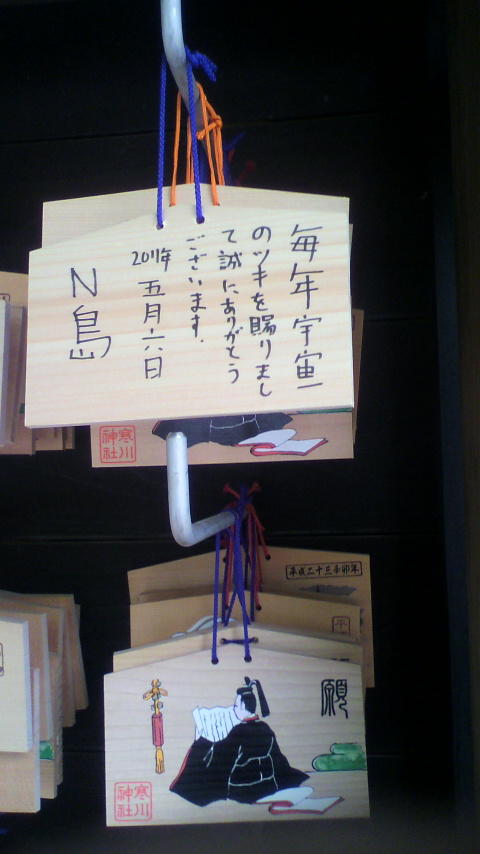 毎年宇宙一
のツキを賜りまし
て誠にありがとう
ございます.
2011年 五月六日
N島
寒川
神社
平成二十三辛卯年
平
願
寒川
神社